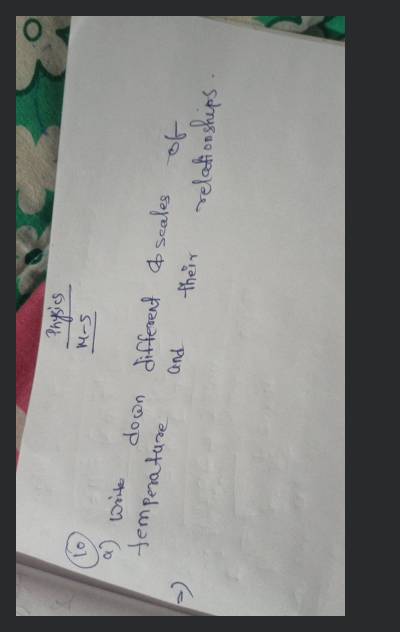 Physics
M-5
(10)
a) Write down different scales of
temperature and their relationships.
=)